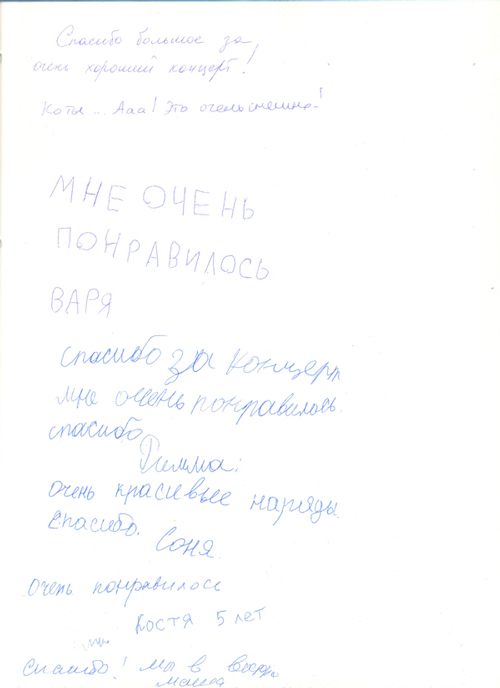 Спасибо большое за
очень хороший концерт!
Коты... Ааа! Это очень смешно!
МНЕ ОЧЕНЬ
ПОНРАВИЛОСЬ
ВАРЯ
Спасибо за концерт
мне очень понравилось.
спасибо
Римма:
очень красивые наряды.
Спасибо.
Соня
Очень понравилось
Костя 5 лет
Спасибо! Мы в